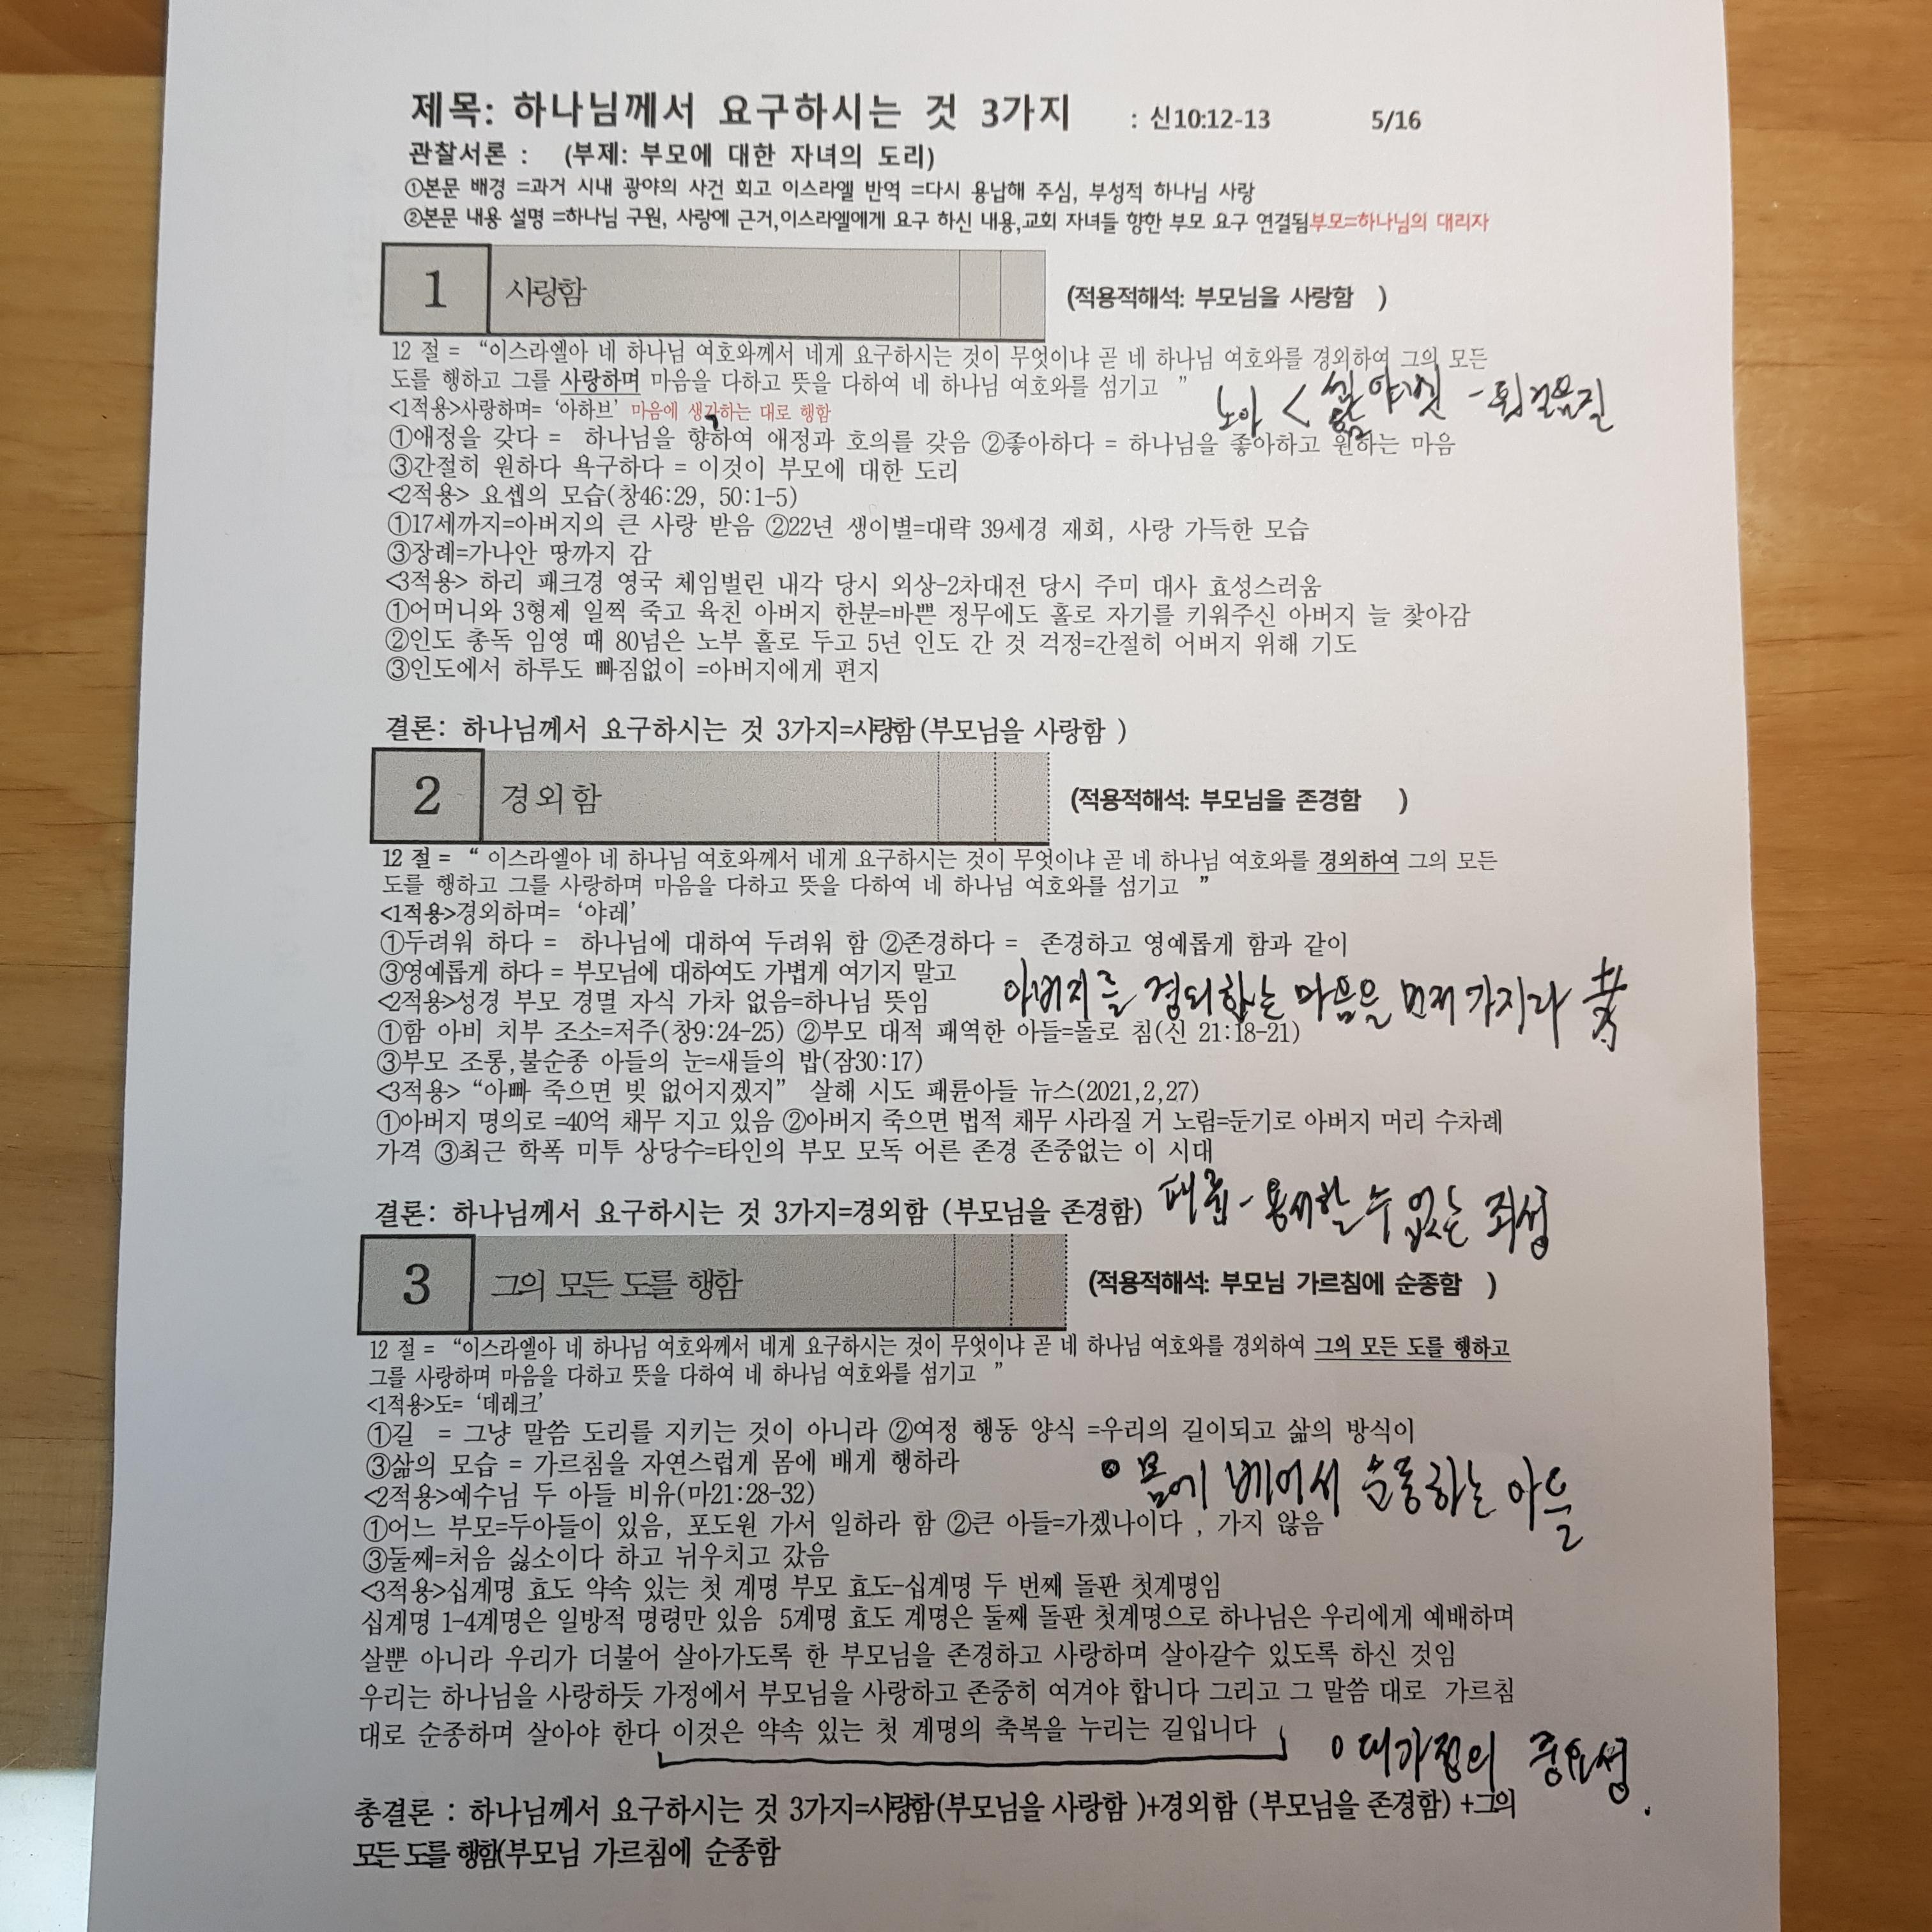 제목: 하나님께서 요구하시는 것 3가지 : 신10:12-13 5/16
관찰서론 : (부제: 부모에 대한 자녀의 도리)
①본문 배경 =과거 시내 광야의 사건 회고 이스라엘 반역 =다시 용납해 주심, 부성적 하나님 사랑
②본문 내용 설명 =하나님 구원, 사랑에 근거,이스라엘에게 요구 하신 내용,교회 자녀들 향한 부모 요구 연결됨부모=하나님의 대리자
1 사랑함 (적용적해석: 부모님을 사랑함 )
12 절 = “이스라엘아 네 하나님 여호와께서 네게 요구하시는 것이 무엇이냐 곧 네 하나님 여호와를 경외하여 그의 모든
도를 행하고 그를 사랑하며 마음을 다하고 뜻을 다하여 네 하나님 여호와를 섬기고 ”
노아 < 셈 야벳 - 뒷걸음질
함
<1적용>사랑하며= ‘아하브’ 마음에 생각하는 대로 행함
①애정을 갖다 = 하나님을 향하여 애정과 호의를 갖음 ②좋아하다 = 하나님을 좋아하고 원하는 마음
③간절히 원하다 욕구하다 = 이것이 부모에 대한 도리
<2적용> 요셉의 모습(창46:29, 50:1-5)
①17세까지=아버지의 큰 사랑 받음 ②22년 생이별=대략 39세경 재회, 사랑 가득한 모습
③장례=가나안 땅까지 감
<3적용> 하리 패크경 영국 체임벌린 내각 당시 외상-2차대전 당시 주미 대사 효성스러움
①어머니와 3형제 일찍 죽고 육친 아버지 한분=바쁜 정무에도 홀로 자기를 키워주신 아버지 늘 찾아감
②인도 총독 임영 때 80넘은 노부 홀로 두고 5년 인도 간 것 걱정=간절히 어버지 위해 기도
③인도에서 하루도 빠짐없이 =아버지에게 편지
결론: 하나님께서 요구하시는 것 3가지=사랑함(부모님을 사랑함 )
2 경외함 (적용적해석: 부모님을 존경함 )
12 절 = “ 이스라엘아 네 하나님 여호와께서 네게 요구하시는 것이 무엇이냐 곧 네 하나님 여호와를 경외하여 그의 모든
도를 행하고 그를 사랑하며 마음을 다하고 뜻을 다하여 네 하나님 여호와를 섬기고 ”
<1적용>경외하며= ‘야레’
①두려워 하다 = 하나님에 대하여 두려워 함 ②존경하다 = 존경하고 영예롭게 함과 같이
③영예롭게 하다 = 부모님에 대하여도 가볍게 여기지 말고
아버지를 경외하는 마음을 먼저 가지라
<2적용>성경 부모 경멸 자식 가차 없음=하나님 뜻임
①함 아비 치부 조소=저주(창9:24-25) ②부모 대적 패역한 아들=돌로 침(신 21:18-21)
③부모 조롱,불순종 아들의 눈=새들의 밥(잠30:17)
<3적용> “아빠 죽으면 빚 없어지겠지” 살해 시도 패륜아들 뉴스(2021,2,27)
①아버지 명의로 =40억 채무 지고 있음 ②아버지 죽으면 법적 채무 사라질 거 노림=둔기로 아버지 머리 수차례
가격 ③최근 학폭 미투 상당수=타인의 부모 모독 어른 존경 존중없는 이 시대
패륜 - 용서할 수 없는 죄성
결론: 하나님께서 요구하시는 것 3가지=경외함 (부모님을 존경함)
3 그의 모든 도를 행함 (적용적해석: 부모님 가르침에 순종함 )
12 절 = “이스라엘아 네 하나님 여호와께서 네게 요구하시는 것이 무엇이냐 곧 네 하나님 여호와를 경외하여 그의 모든 도를 행하고
그를 사랑하며 마음을 다하고 뜻을 다하여 네 하나님 여호와를 섬기고 ”
<1적용>도= ‘데레크’
①길 = 그냥 말씀 도리를 지키는 것이 아니라 ②여정 행동 양식 =우리의 길이되고 삶의 방식이
③삶의 모습 = 가르침을 자연스럽게 몸에 배게 행하라
몸에 베어서 순종하는 아들
<2적용>예수님 두 아들 비유(마21:28-32)
①어느 부모=두아들이 있음, 포도원 가서 일하라 함 ②큰 아들=가겠나이다 , 가지 않음
③둘째=처음 싫소이다 하고 뉘우치고 갔음
<3적용>십계명 효도 약속 있는 첫 계명 부모 효도-십계명 두 번째 돌판 첫계명임
십계명 1-4계명은 일방적 명령만 있음 5계명 효도 계명은 둘째 돌판 첫계명으로 하나님은 우리에게 예배하며
살뿐 아니라 우리가 더불어 살아가도록 한 부모님을 존경하고 사랑하며 살아갈수 있도록 하신 것임
우리는 하나님을 사랑하듯 가정에서 부모님을 사랑하고 존중히 여겨야 합니다 그리고 그 말씀 대로 가르침
대로 순종하며 살아야 한다 이것은 약속 있는 첫 계명의 축복을 누리는 길입니다
대가정의 중요성.
총결론 : 하나님께서 요구하시는 것 3가지=사랑함(부모님을 사랑함 )+경외함 (부모님을 존경함) +그의
모든 도를 행함(부모님 가르침에 순종함